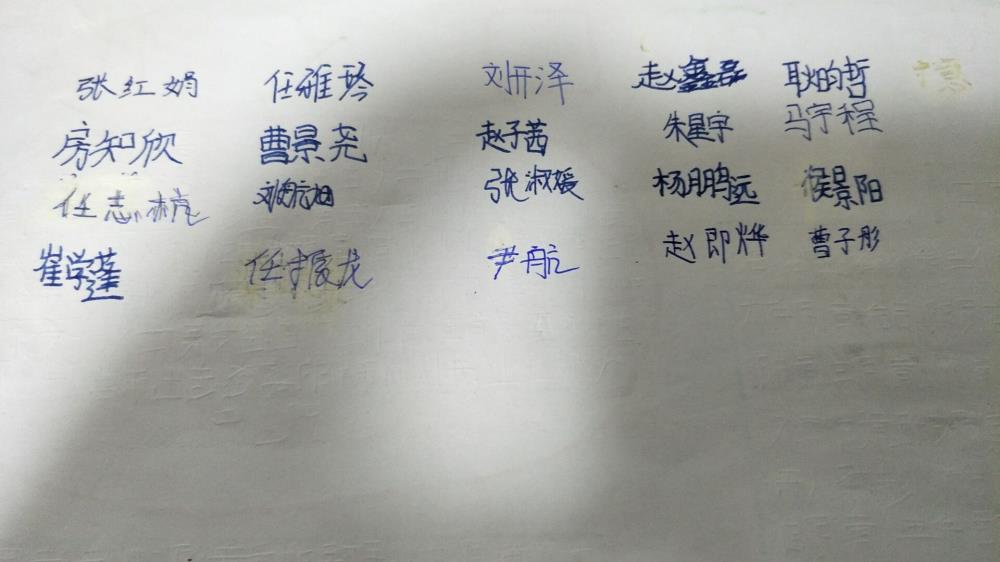 张红娟 任雅琴 刘开泽 赵鑫磊 耿昀哲
房知欣 曹景尧 赵子茜 朱星宇 马宇程
任志桢 刘航旭 张淑媛 杨鹏远 侯景阳
崔学莲 任振龙 尹航 赵即烨 曹子彤